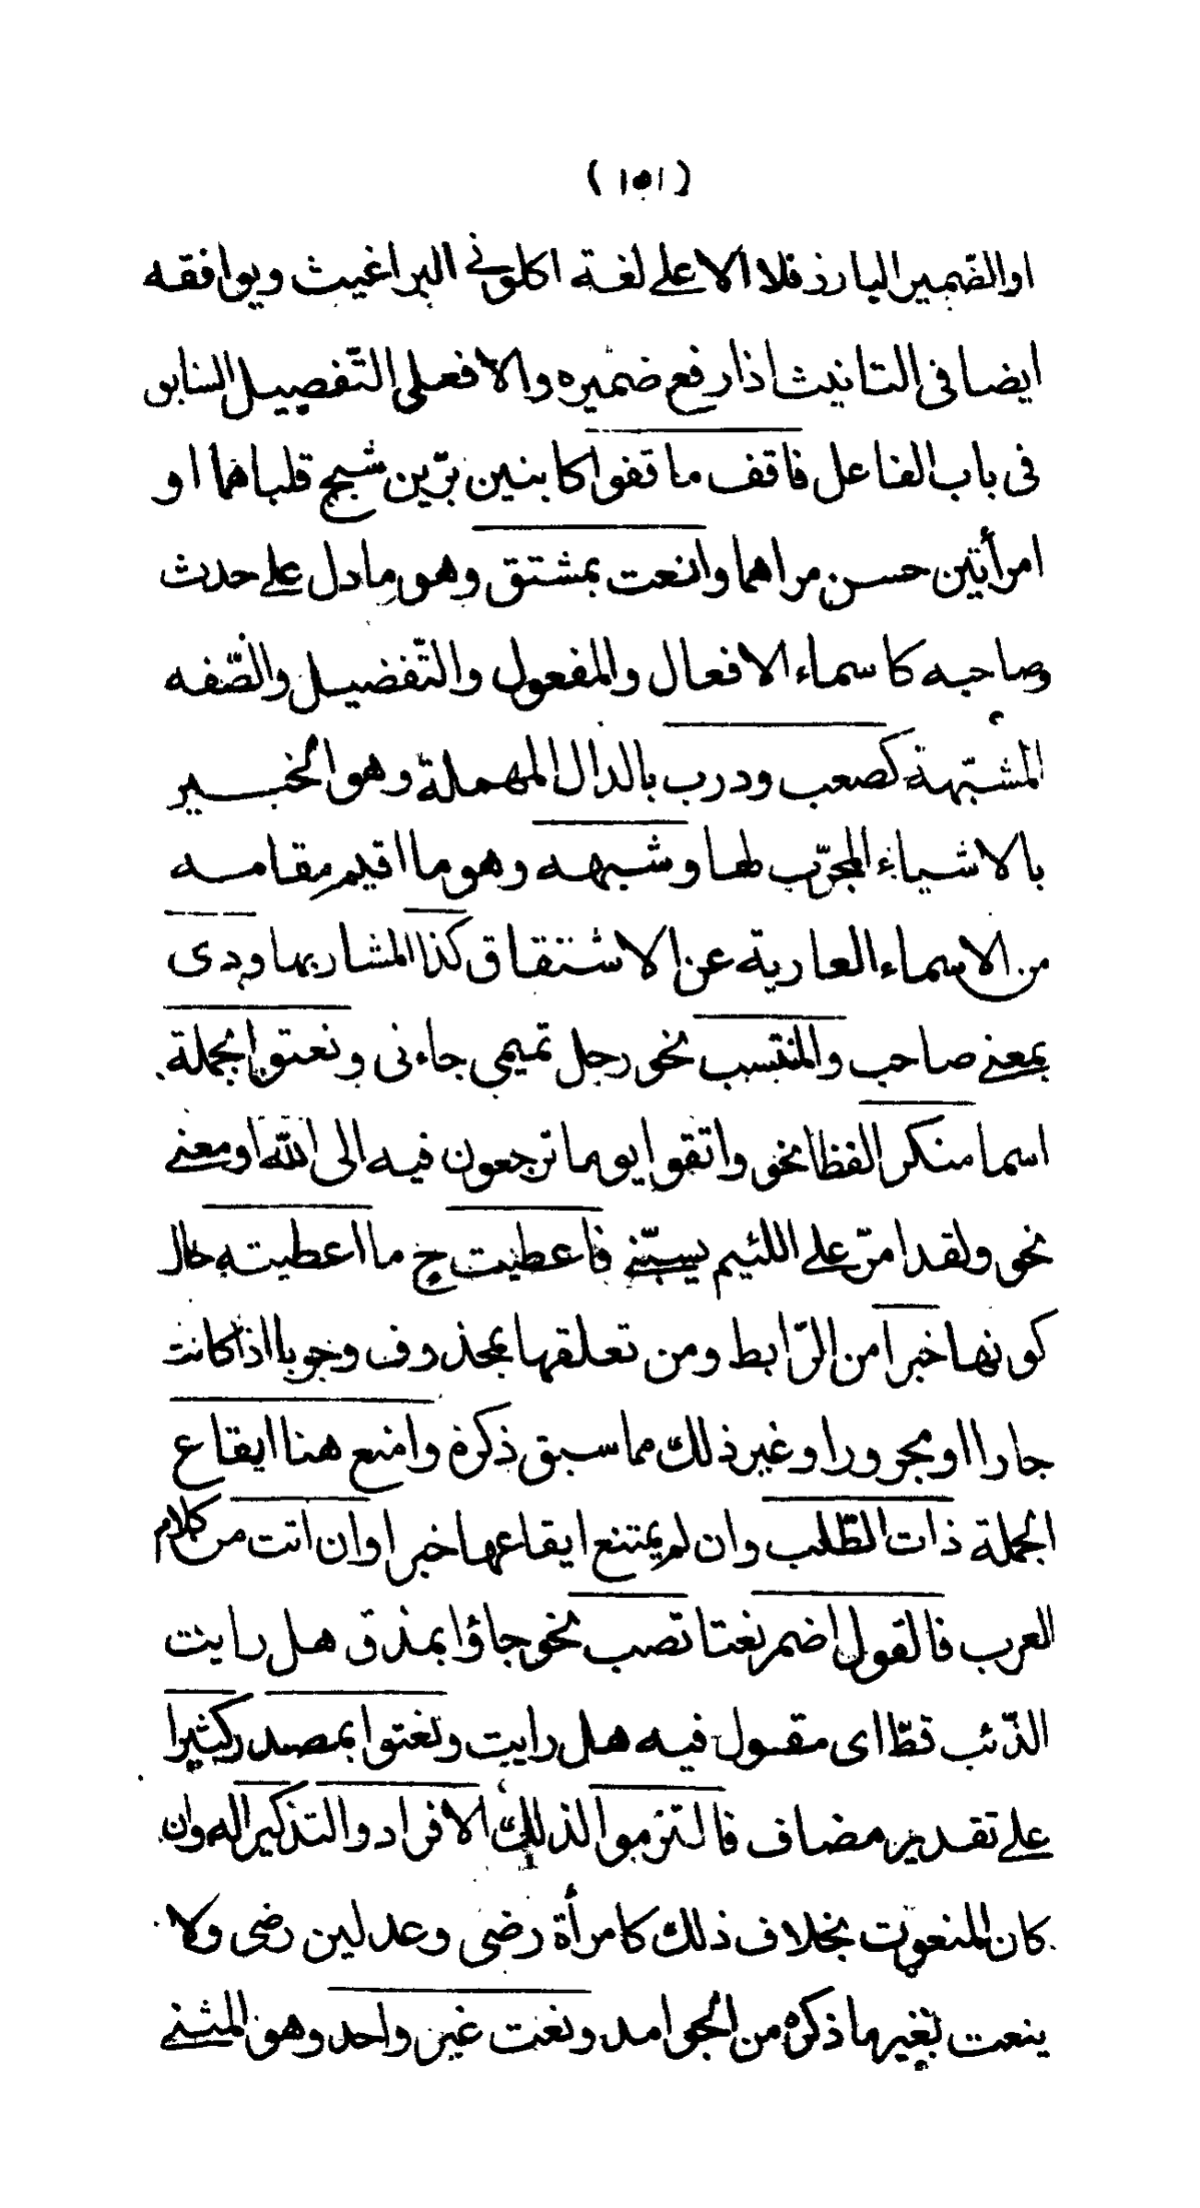 (١٥١)
او الضّمير البارز فلا الا على لغة اكلونى البراغيث ويوافقه
ايضا فى التانيث اذا رفع ضميره والا فعلى التّفصيل السابق
فى باب الفاعل فاقف ما قفوا كابنين برّين شجج قلباهما او
امرأتين حسن مراهما وانعت بمشتق وهو ما دل على حدث
وصاحبه كاسماء الافعال والمفعول والتّفضيل والصّفه
المشبّهة كصعب ودرب بالدال المهملة وهو الخبير
بالاشياء المجرّب لها وشبهه وهو ما اقيم مقامه
من الاسماء العارية عن الاشتقاق كذا المشار بها وذى
بمعنى صاحب والمنتسب نحو رجل تميمى جاءنى ونعتوا بجملة
اسما منكرا لفظا نحو واتقوا يوما ترجعون فيه الى اللّه او معنى
نحو ولقد امرّ على اللئيم يسبّنى فاعطيت ح ما اعطيته حال
كونها خبرا من الرّابط ومن تعلقها بمحذوف وجوبا اذا كانت
جارا او مجرورا وغير ذلك مما سبق ذكرة وامنع هنا ايقاع
الجملة ذات الطّلب وان لم يمتنع ايقاعها خبرا وان اتت من كلام
العرب فالقول اضمر نعتا تصب نحو جاؤا بمذق هل رايت
الذّئب قطّ اى مقول فيه هل رايت ونعتوا بمصدر كثيرا
على تقدير مضاف فالتزموا لذلك الافراد والتذكير له وان
كان المنعوت بخلاف ذلك كامرأة رضى وعدلين رضى ولا
ينعت بغيرها ذكره من الجوامد ونعت غير واحد وهو المثنى